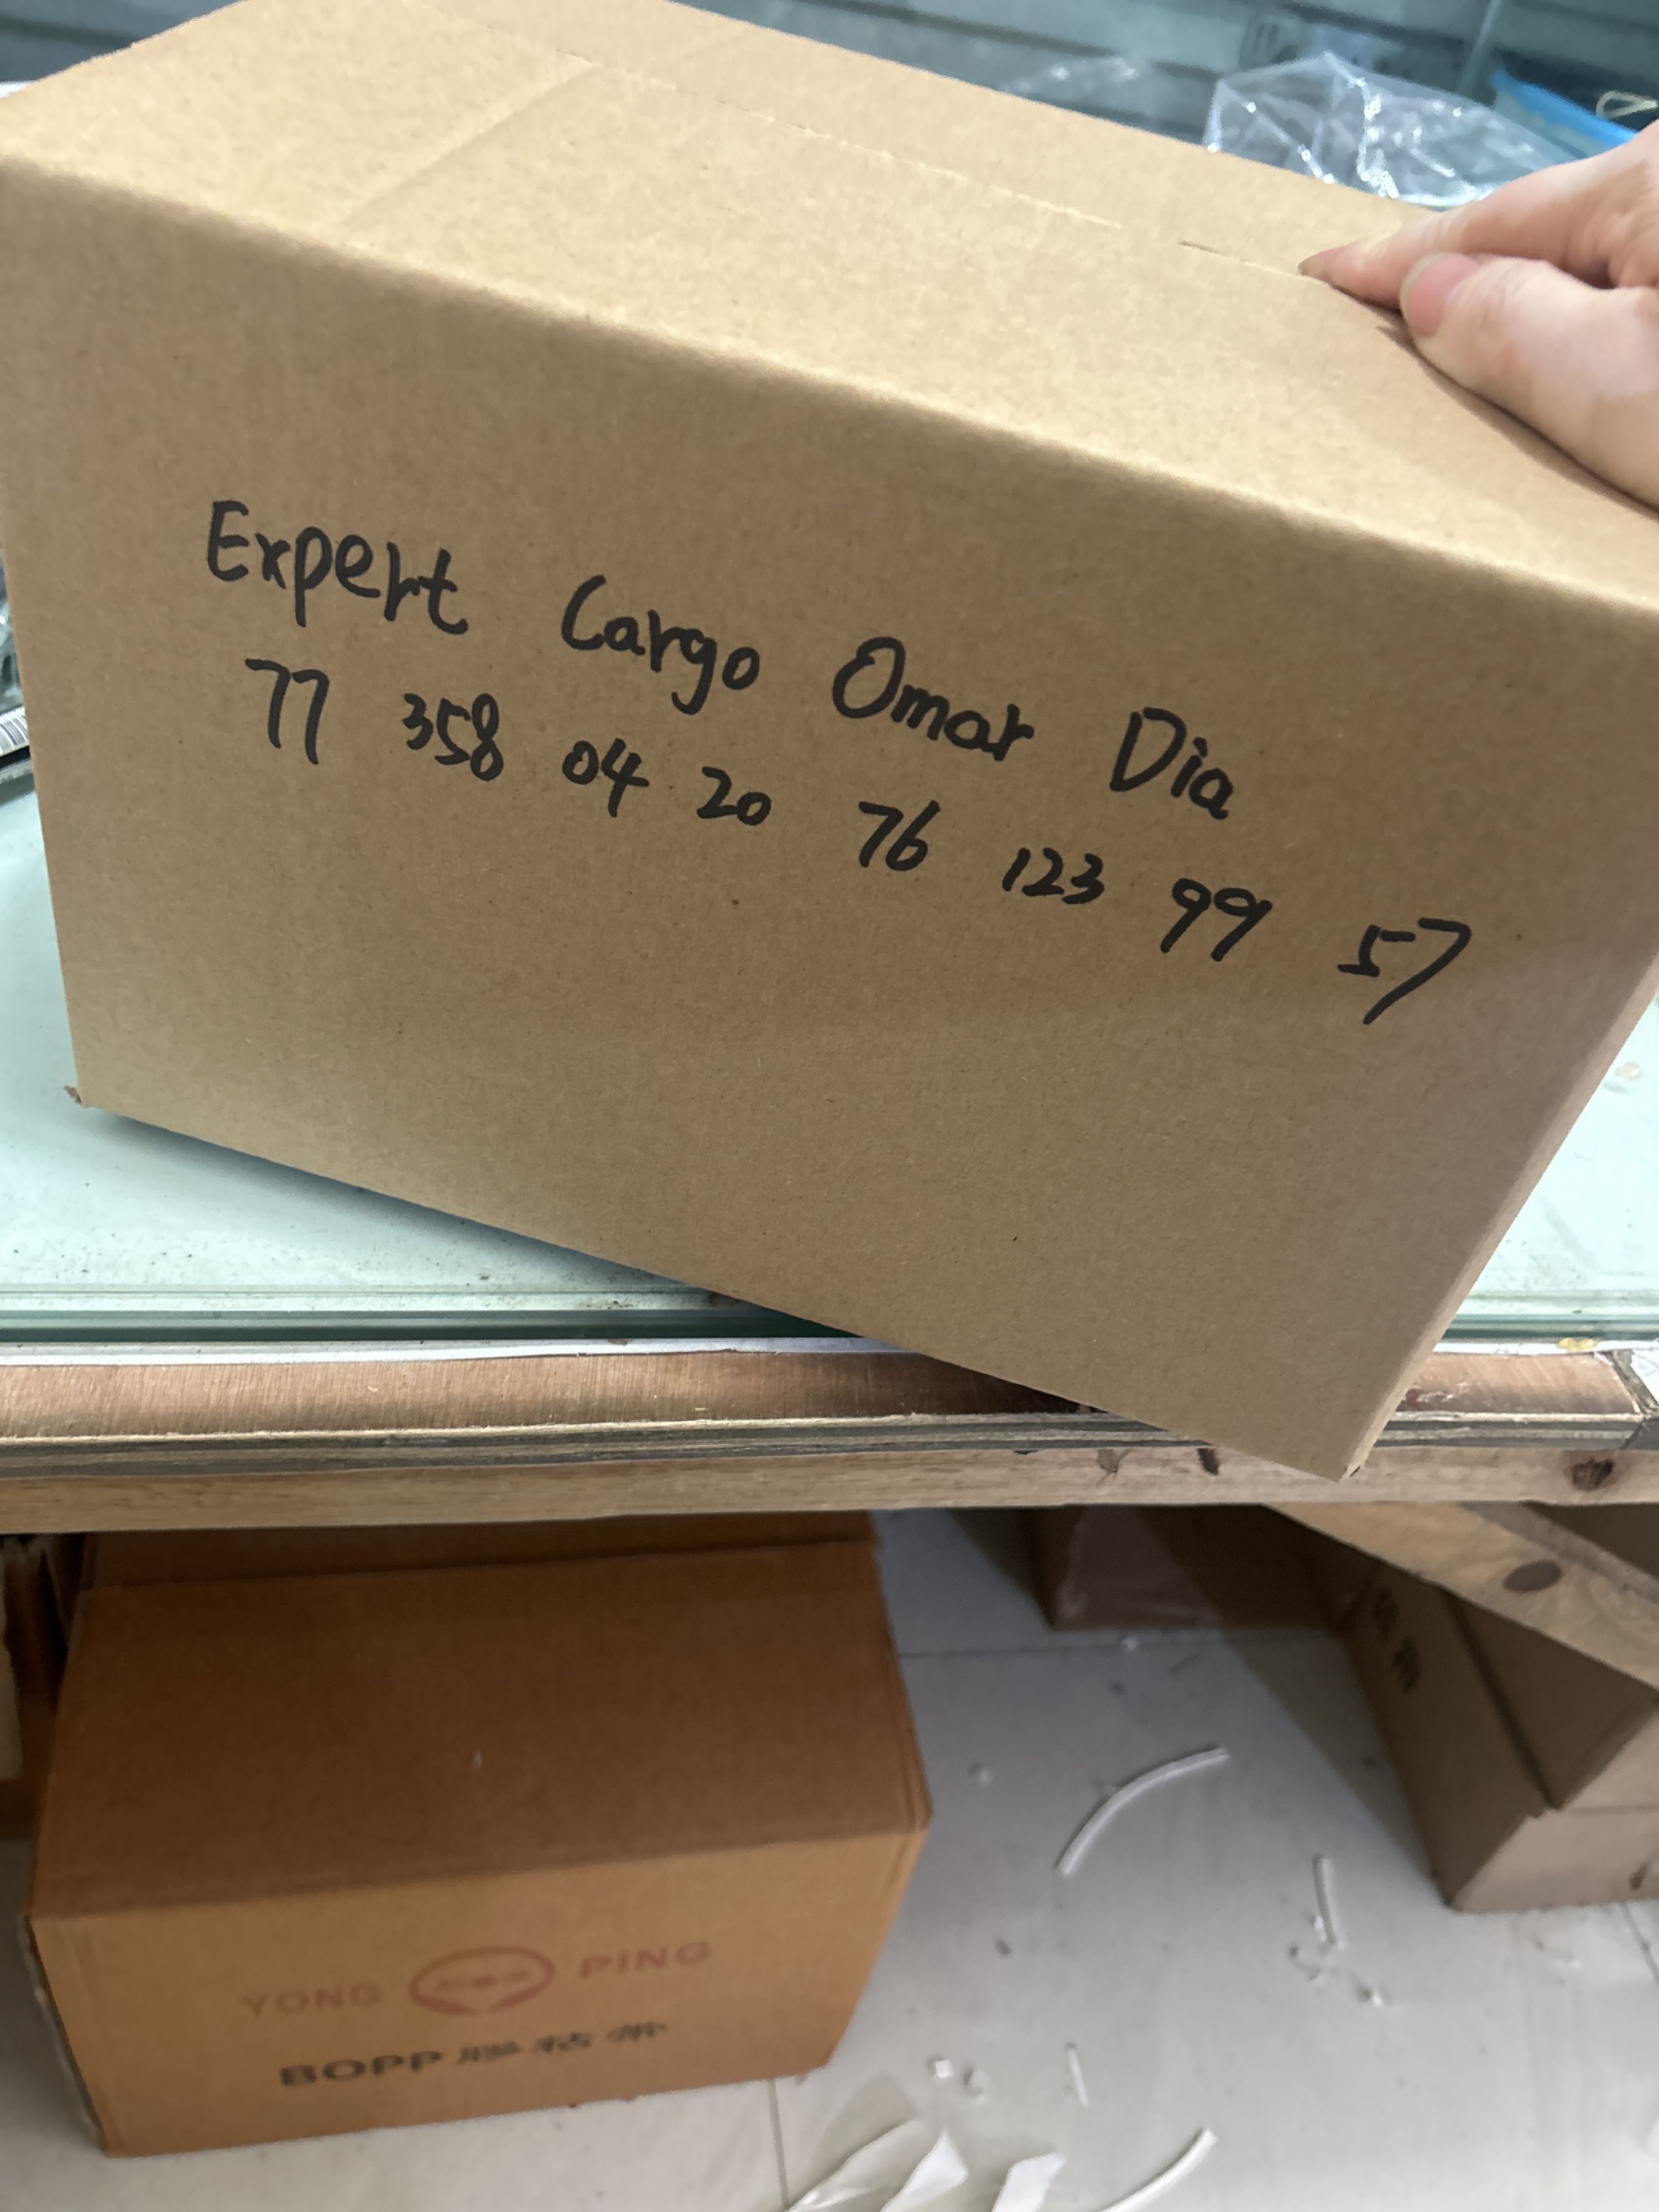 Expert Cargo Omar Dia
77 358 04 20 76 123 99 57
YONG PING
BOPP